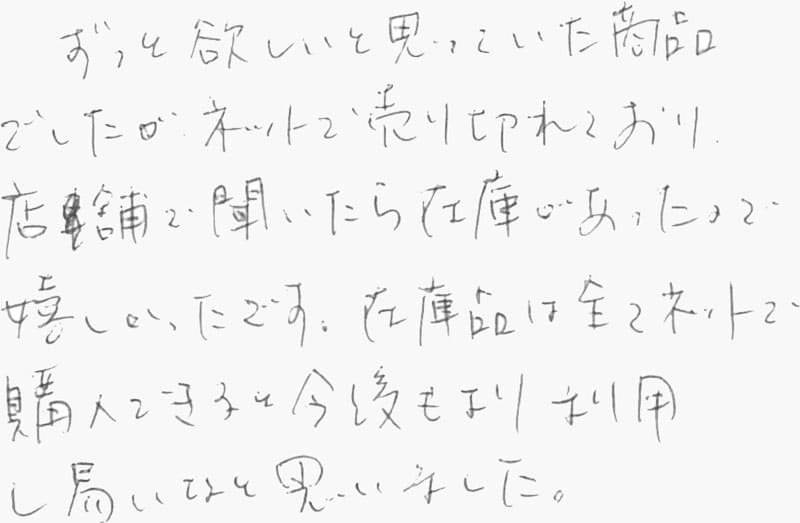 ずっと欲しいと思っていた商品
でしたが ネットで売り切れており
店舗で聞いたら在庫があったので
嬉しかったです。在庫品は全てネットで
購入できると今後もより利用
し易いなと思いました。